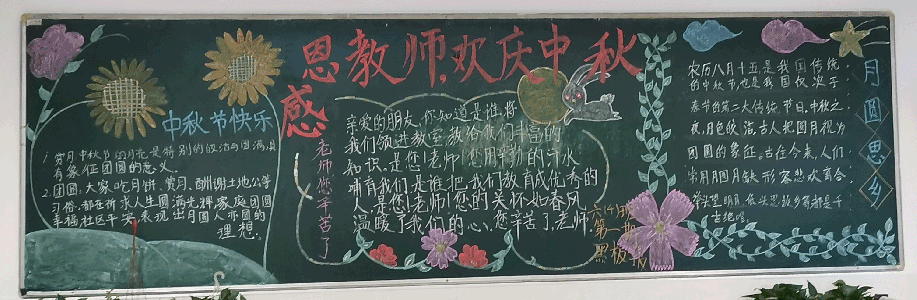 感恩教师，欢庆中秋
中秋节快乐
1.赏月，中秋节的月亮是特别的皎洁与圆满，具
有象征团圆的意义。
2.团圆，大家吃月饼、赏月、酬谢土地公等
习俗，都在祈求人生圆满光辉，家庭团圆
幸福，社区平安，表现出月圆人亦圆的
理想。
老师您辛苦了
亲爱的朋友，你知道是谁将
我们领进教室，教给我们丰富的
知识。是您！老师！您用辛勤的汗水
哺育我们，是谁把我们放育成优秀的
人，是您！老师！您的关怀如春风，
温暖了我们的心，您辛苦了，老师。
六(4)班
第一期
黑板报
农历八月十五是我国传统
的中秋节，也是我国仅次于
春节的第二大传统节日，中秋之
夜，月色皎洁，古人把圆月视为
团圆的象征。古往今来，人们
常用月圆月缺形容悲欢离合，
举头望明月，低头思故乡
月圆思乡